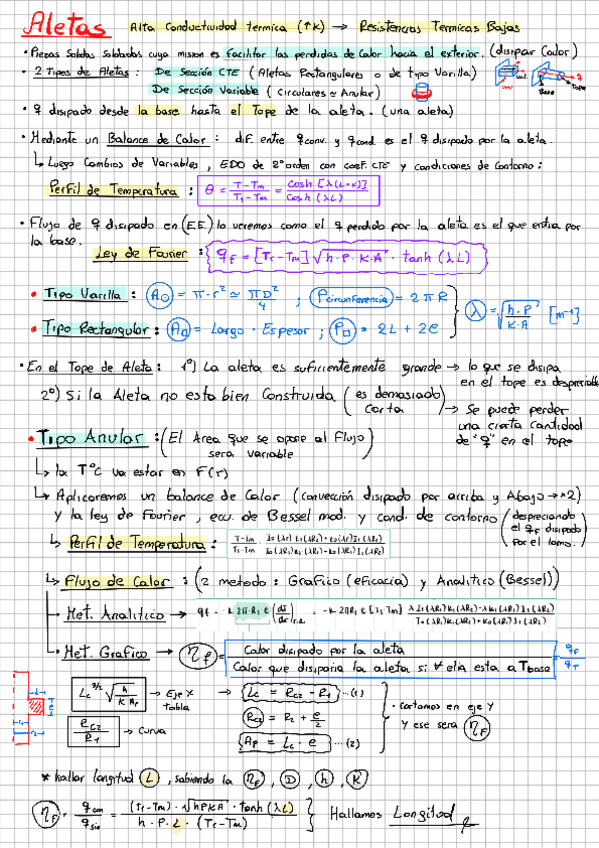 Aletas Alta Conductividad termica (↑K) → Resistencias Termicas Bajas
• Piezas Solidas Soldadas cuya mision es facilitar las perdidas de Calor hacia el exterior. (disipar Calor)
• 2 Tipos de Aletas : De Sección CTE (Aletas Rectangulares o de tipo Varilla)
De Sección Variable (Circulares ≃ Anular)
Base Tope
• q disipado desde la base hasta el Tope de la aleta. (una aleta)
• Mediante un Balance de Calor : dif. entre q conv. y q cond. es el q disipado por la aleta.
↳ Luego Cambios de Variables, EDO de 2º orden con coef. CTE y condiciones de Contorno :
Perfil de Temperatura : θ = (T-T∞)/(T1-T∞) = cosh [λ(L-x)] / cosh (λL)
• Flujo de q disipado en (E.E.) lo veremos como el q perdido por la aleta es el que entra por
la base.
Ley de Fourier : q_F = [T1-T∞] √(h·P·K·A) · tanh (λL)
• Tipo Varilla : A = π·r² ≃ πD²/4 ; Pcircunferencia = 2πR
λ = √(h·P / K·A) [m⁻¹]
• Tipo Rectangular : A = Largo · Espesor ; P = 2L + 2e
• En el Tope de Aleta : 1º) La aleta es suficientemente grande → lo que se disipa
en el tope es despreciable
2º) Si la Aleta no esta bien Construida (es demasiado
Corta) → Se puede perder
una cierta cantidad
de "q" en el tope
• Tipo Anular : (El Area que se opone al Flujo
sera variable)
↳ la TºC va estar en F(r)
↳ Aplicaremos un balance de Calor (convección disipado por arriba y Abajo → ×2)
y la ley de Fourier, ecu. de Bessel mod. y cond. de contorno (despreciando
el q_F disipado
por el lomo.)
↳ Perfil de Temperatura :
↳ Flujo de Calor : (2 metodo : Grafico (eficacia) y Analitico (Bessel))
Met. Analitico →
Met. Grafico → η_F = Calor disipado por la aleta / Calor que disiparia la aleta si ∀ ella esta a Tbase = q_F / q_T
Lc^(3/2) √(h / K Ap) → Eje x
tabla
→ Lc = Rc2 - R1 ...(1)
Rc2 = R2 + e/2
Rc2 / R1 → Curva
Ap = Lc · e ...(2)
• Cortamos en eje Y
Y ese sera η_F
* hallar longitud L, sabiendo la η_F, D, h, K
η_F = q con / q sin = (T1-T∞) · √(hPKA) · tanh (λL) / h · P · L · (T1-T∞) } Hallamos Longitud